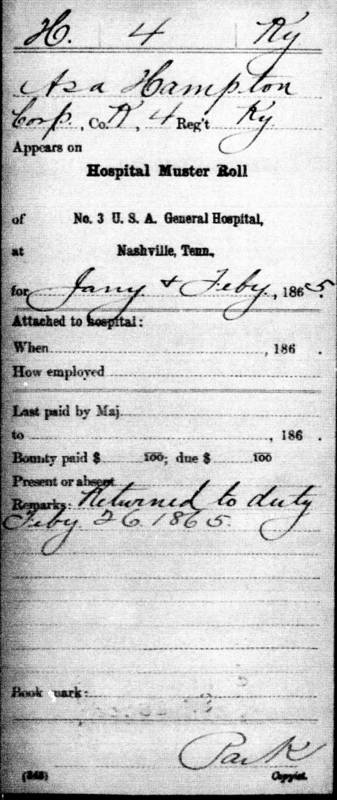 H. | 4 | Ky
Asa Hampton
Corp, Co. K, 4 Reg't Ky
Appears on
Hospital Muster Roll
of No. 3 U. S. A. General Hospital,
at Nashville, Tenn.,
for Jany. & Feby., 1865.
Attached to hospital:
When , 186 .
How employed
Last paid by Maj.
to , 186 .
Bounty paid $ 100; due $ 100
Present or absent
Remarks: Returned to duty
Feby 26 1865.
Book mark:
Park
(343) Copyist.